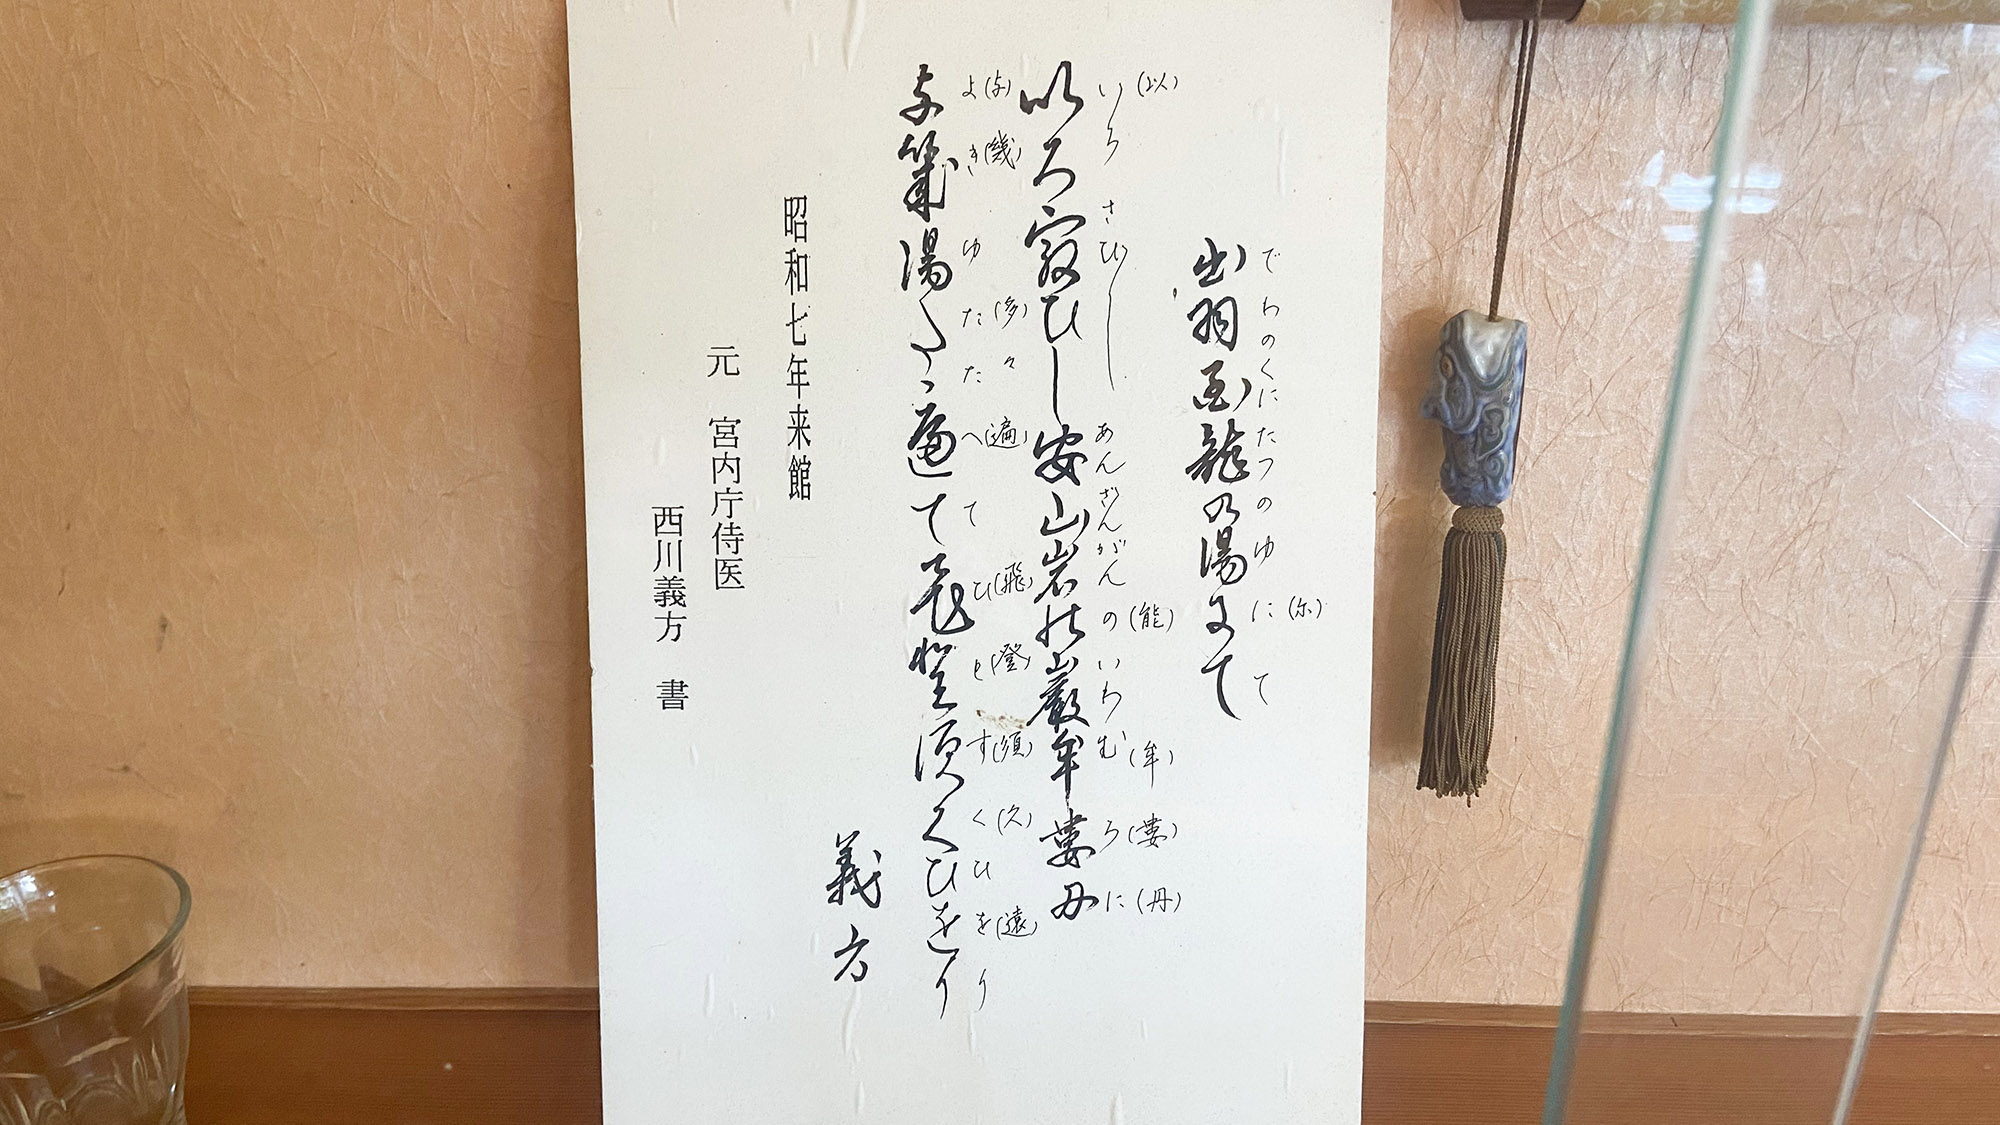 でわのくにたつのゆに(尓)て
出羽国龍乃湯尓て
い(以)ろさひしあんざんがんの(能)いわむ(牟)ろ(婁)に(丹)
以ろ寂ひし安山岩能巌牟婁丹
よ(与)き(幾)ゆた(多)た(々)へ(遍)てひ(飛)と(登)す(須)く(久)ひを(遠)り
与幾湯多々遍て飛登須久ひ遠り
義方
昭和七年来館
元 宮内庁侍医
西川義方 書